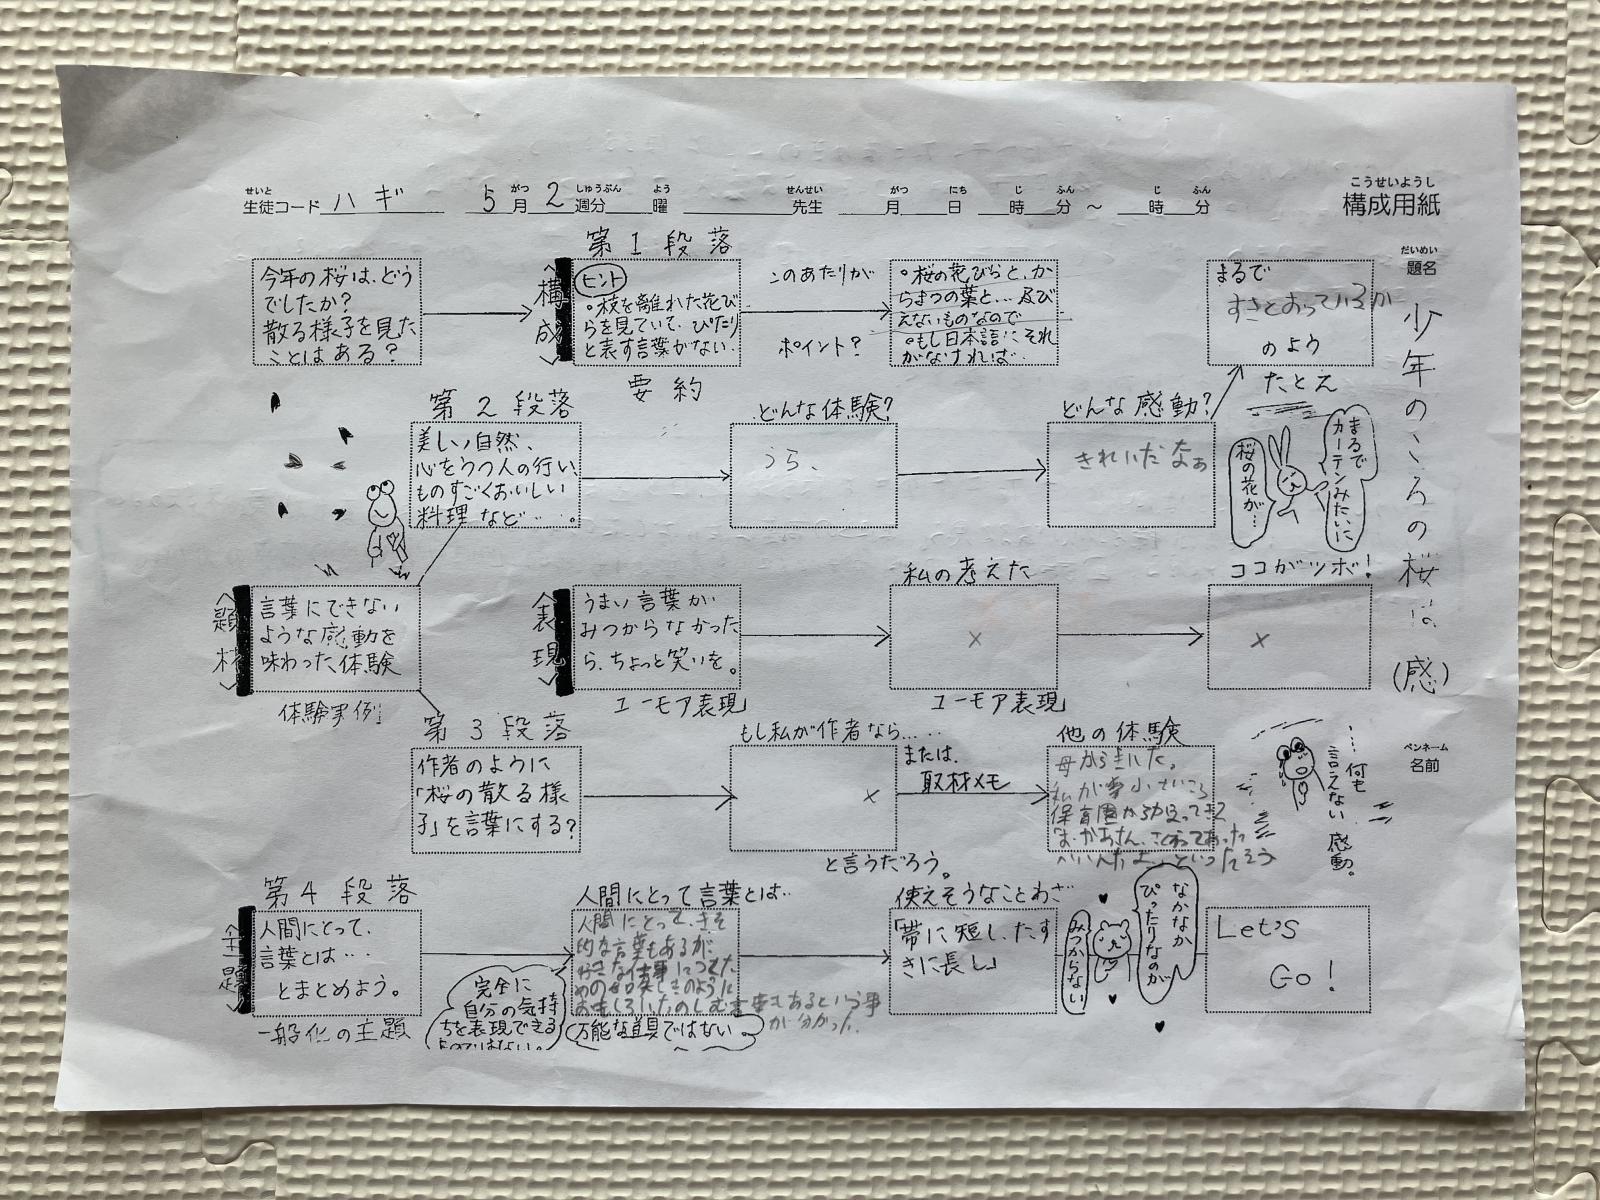 こうせいようし
構成用紙
せいと がつ しゅうぶん よう せんせい がつ にち じ ふん じ ふん
生徒コード ハギ 5月2週分 曜 先生 月 日 時 分 ～ 時 分
だいめい
題名
少年のころの桜は(感)
ペンネーム
名前
今年の桜は、どう
でしたか?
散る様子を見た
ことはある?
第1段落
〈構成〉
ヒント
○枝を離れた花び
らを見ていて、ぴたり
と表す言葉がない。
要約
このあたりが
ポイント?
○桜の花びらと、か
らまつの葉と…及び
えないものなので
○もし日本語にそれ
がなければ…
まるで
すきとおっているか
のよう
たとえ
第2段落
美しい自然、
心をうつ人の行い、
ものすごくおいしい
料理など……。
どんな体験?
うら、
どんな感動?
きれいだなぁ
まるで
カーテンみたいに
桜の花が…
〈題材〉
言葉にできない
ような感動を
味わった体験
体験実例
〈表現〉
うまい言葉が
みつからなかった
ら、ちょっと笑いを。
ユーモア表現
私の考えた
×
ユーモア表現
ココがツボ!
×
第3段落
作者のように
「桜の散る様
子」を言葉にする?
もし私が作者なら……
×
と言うだろう。
または、
取材メモ
他の体験
母からきいた。
私が小さいころ
保育園からかえってきて
……何も
言えない
感動。
第4段落
〈主題〉
人間にとって、
言葉とは‥‥
とまとめよう。
一般化の主題
完全に
自分の気持
ちを表現できる
ものではない。
人間にとって言葉とは…
人間にとって、きそ
的な言葉もあるが
おもしろい、たのしむ言葉もあるという事
が分かった。
万能な道具ではない。
使えそうなことわざ
「帯に短し、たす
きに長し」
なかなか
ぴったりなのが
みつからない
Let's
Go!